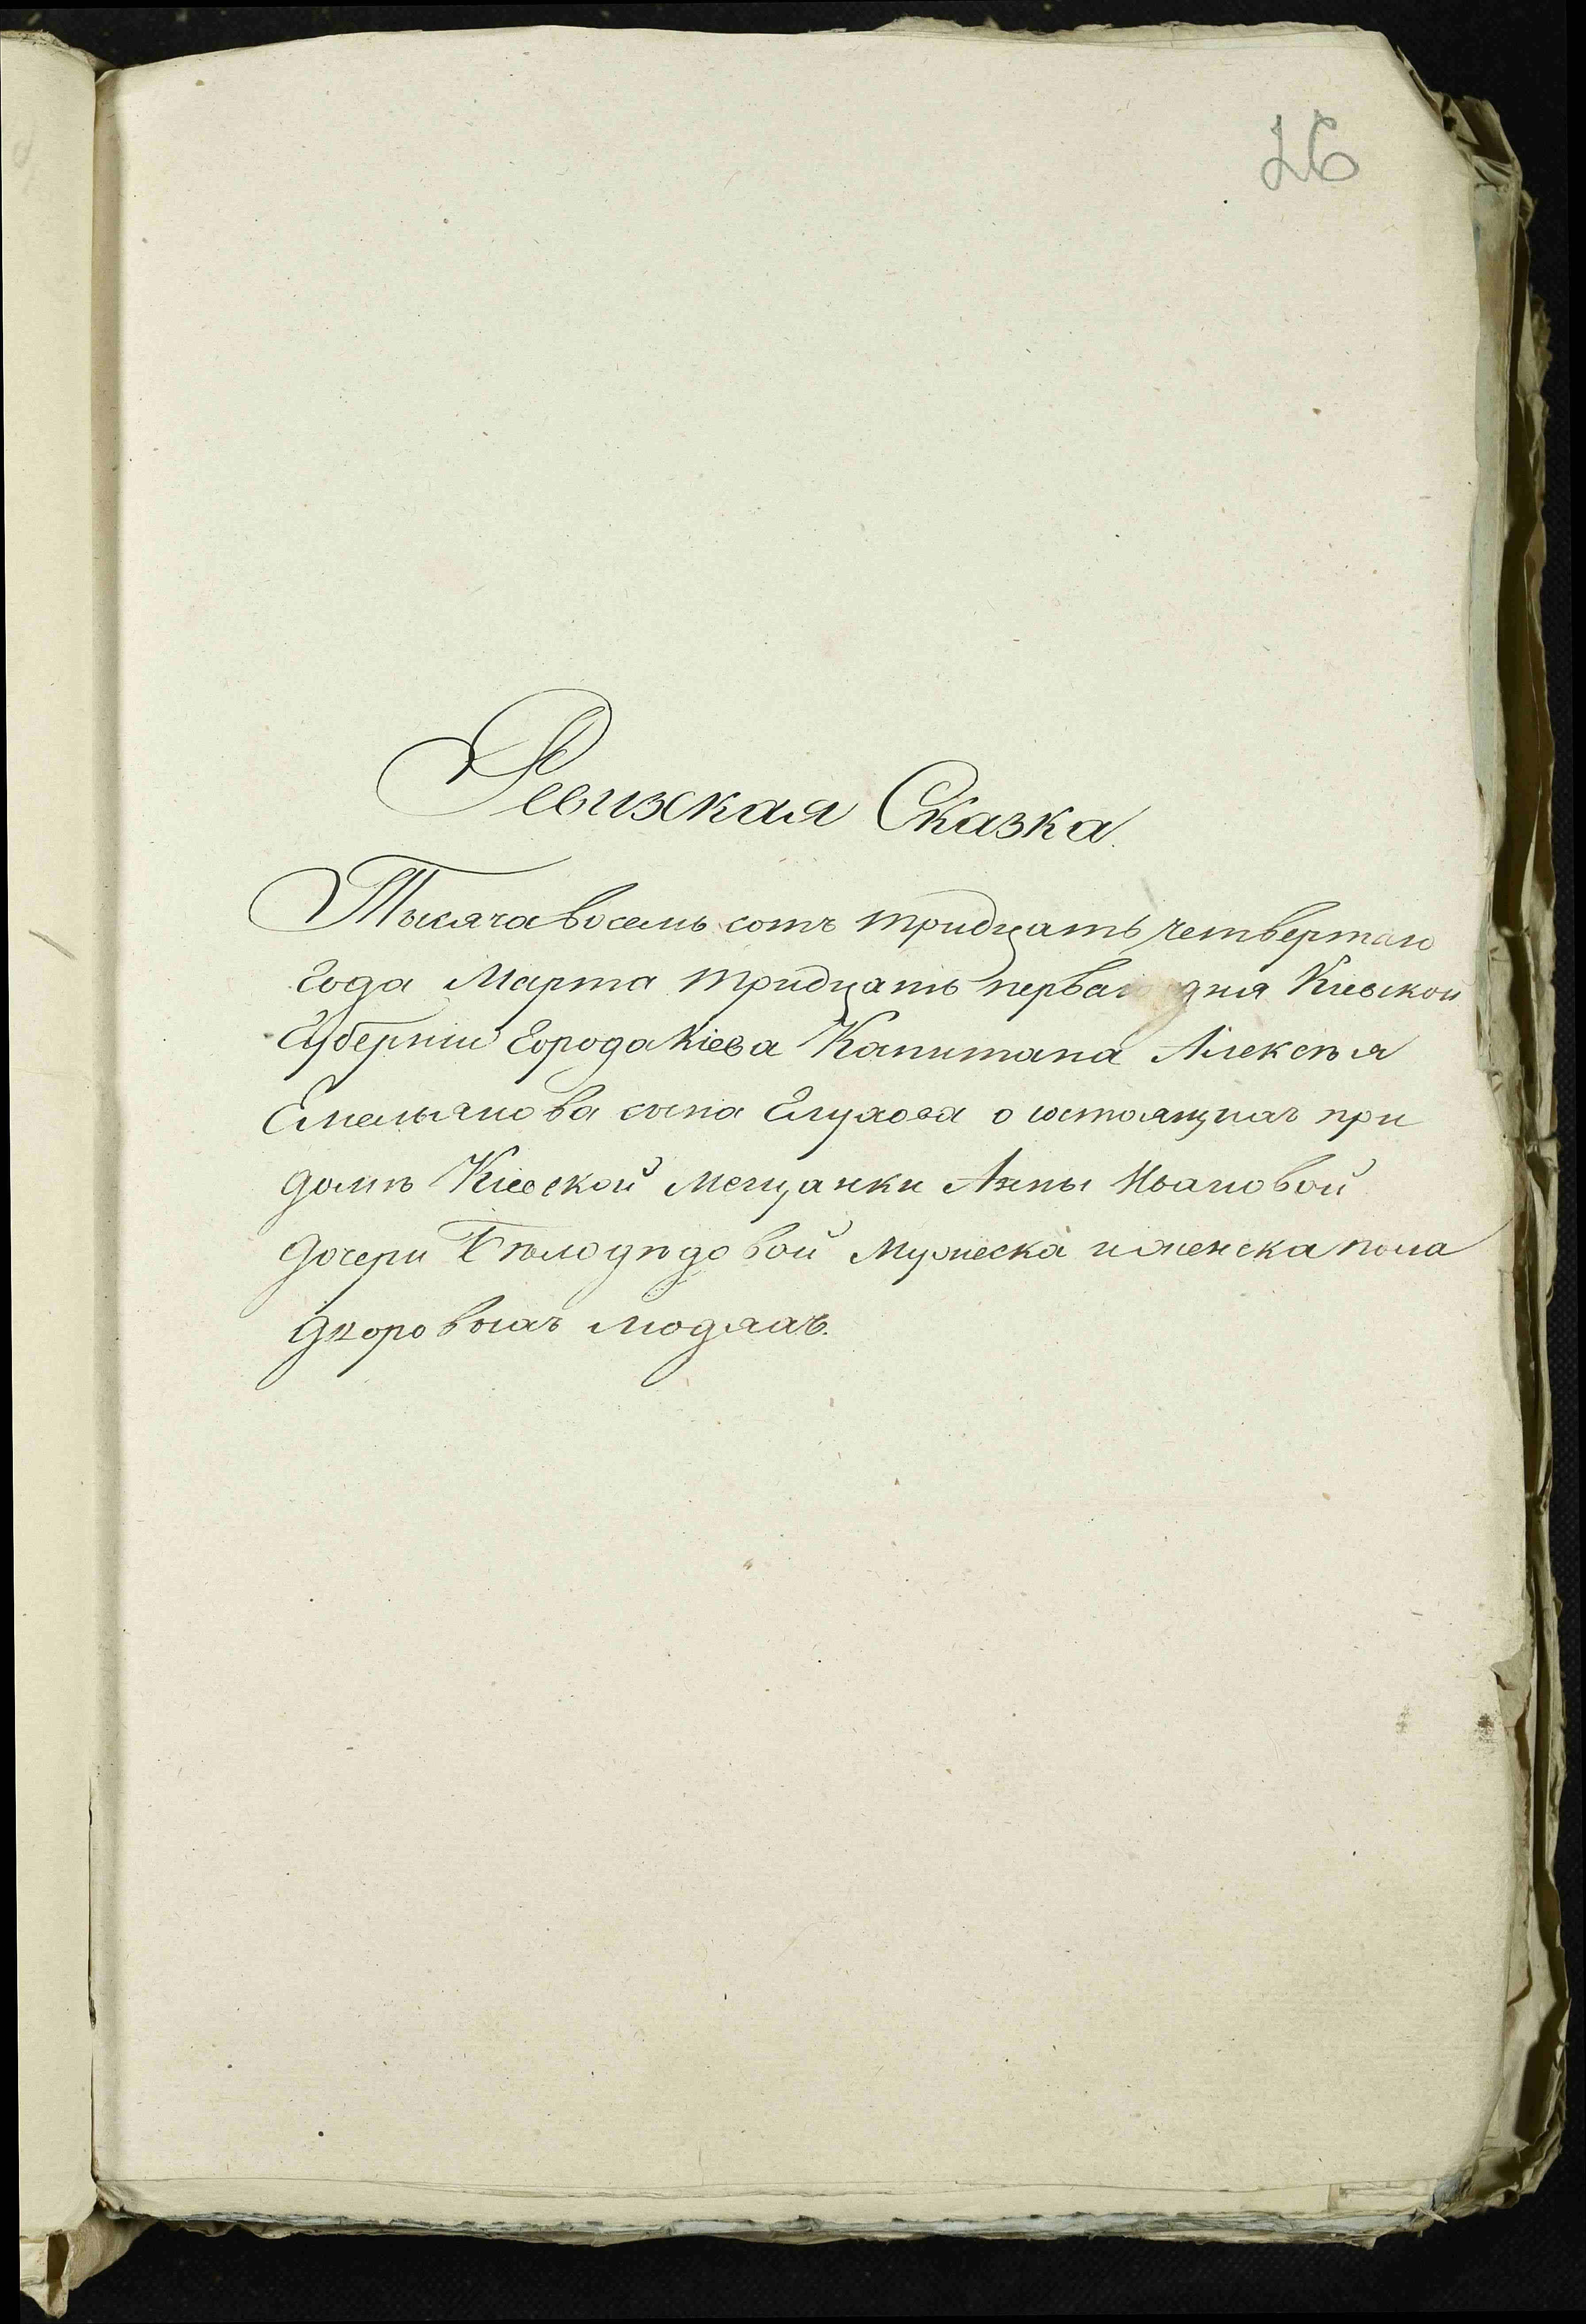 26
Ревизская Сказка.
Тысяча восемь сотъ тридцать четвертаго
года Марта тридцать перваго дня Кіевской
Губерніи города Кіева Капитана Алексѣя
Емельянова сына Глухова о состоящихъ при
домѣ Кіевской мещанки Анны Ивановой
дочери Бѣлодѣдовой мужеска и женска пола
дворовыхъ людяхъ.